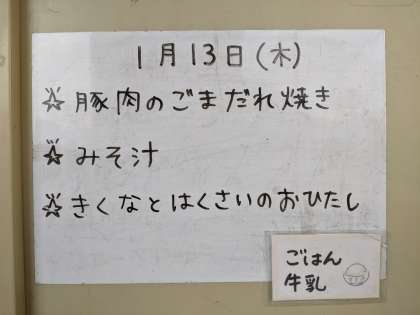 1月13日(木)
☆豚肉のごまだれ焼き
☆みそ汁
☆きくなとはくさいのおひたし
ごはん
牛乳